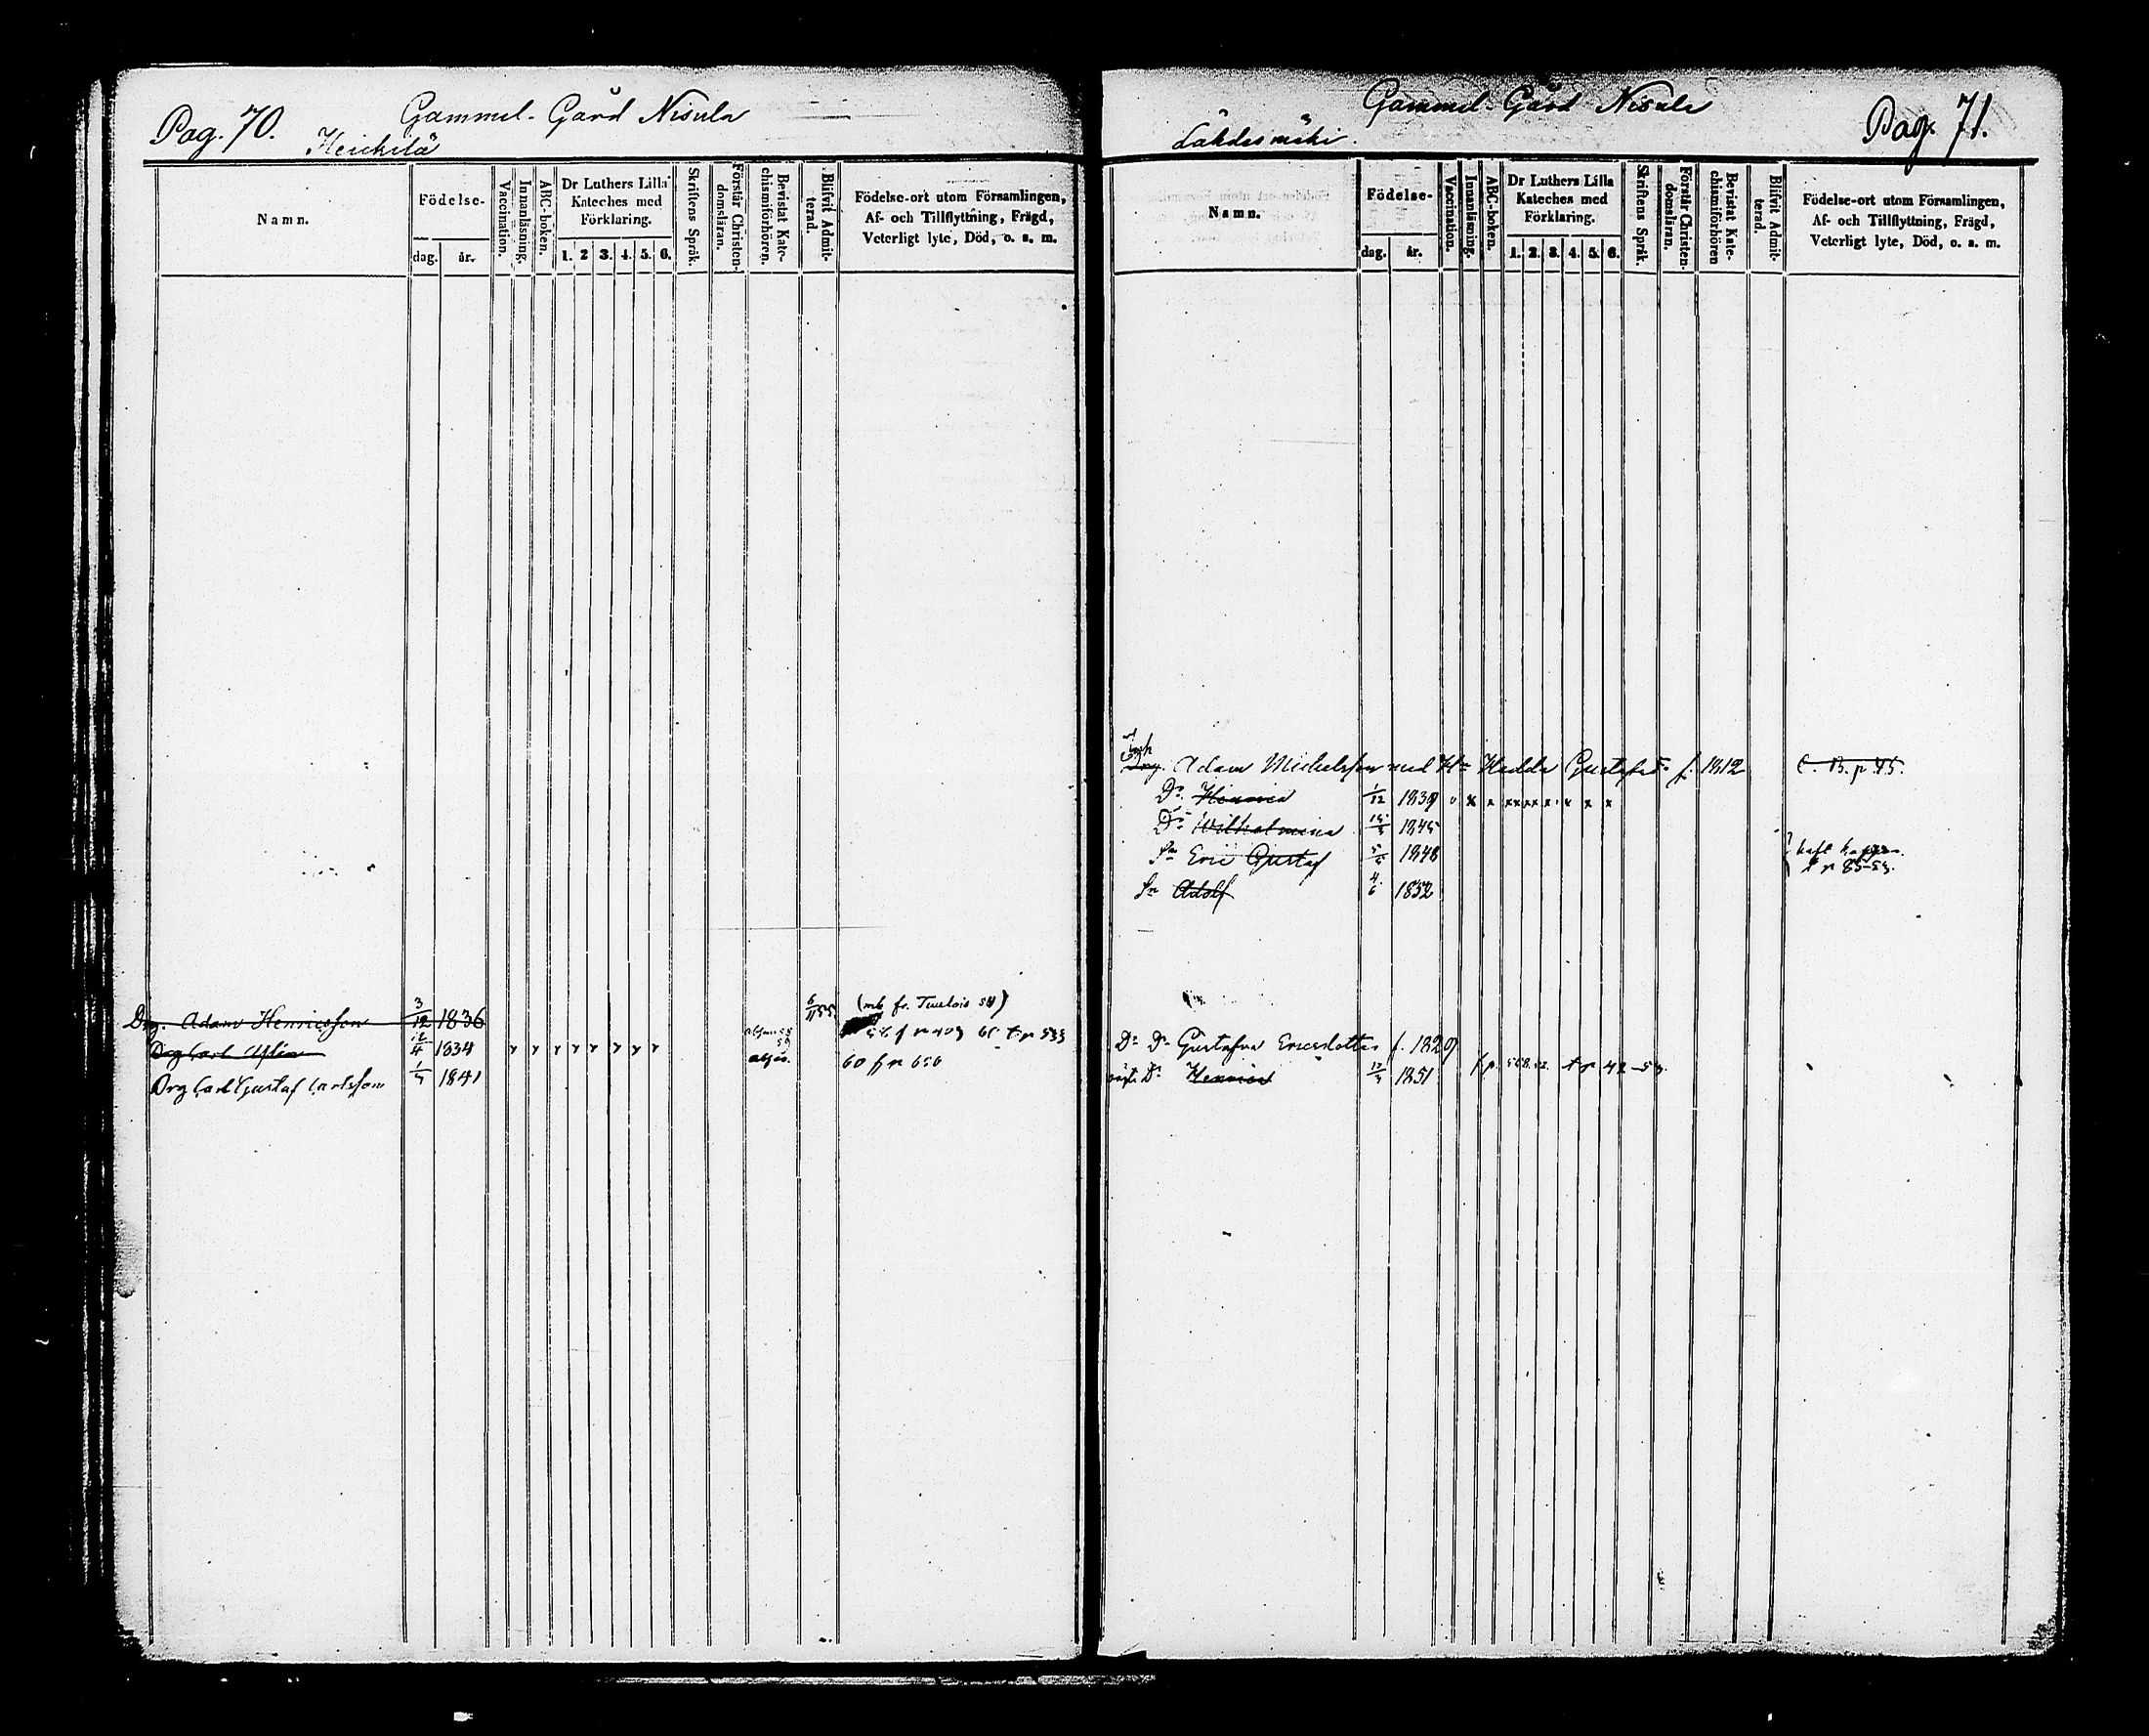 Pag. 70.
Gammel-Gård Nisula
Heickilä
Namn.
Födelse-
dag.
år.
Vaccination.
Innanläsning.
ABC-boken.
Dr Luthers Lilla
Kateches med
Förklaring.
1. 2 3. 4. 5. 6.
Skriftens Språk.
Förstår Christen-
domsläran.
Bevistat Kate-
chismiförhören.
Blifvit Admit-
terad.
Födelse-ort utom Församlingen,
Af- och Tillflyttning, Frägd,
Veterligt lyte, Död, o. s. m.
Drg. Adam Henricsson 3/12 1836 6/11 55 (mb fr. Tuulois 54)
Drg Carl 12/4 1834
Drg Carl Gustaf Carlsson 1/5 1841 60 f p 656
Gammel-Gård Nisula
Pag. 71.
Lähdesmäki.
Namn.
Födelse-
dag.
år.
Vaccination.
Innanläsning.
ABC-boken.
Dr Luthers Lilla
Kateches med
Förklaring.
1. 2. 3. 4. 5. 6.
Skriftens Språk.
Förstår Christen-
domsläran.
Bevistat Kate-
chismiförhören
Blifvit Admit-
terad.
Födelse-ort utom Församlingen,
Af- och Tillflyttning, Frägd,
Veterligt lyte, Död, o. s. m.
Inh
Drg. Adam Michelsson med Hu Hedda Gustafsdr f. 1812 C. B. p 45.
Dr. Henrica 1/12 1839 v x x x x x x x x x
Dr Wilhelmina 1845
Sn Eric Gustaf 1848 haft koppor.
Sn Adolf 4/6 1832 t p 85-53.
Dr Dr Gustafva Ericsdotter f. 1829
oägta Dr Henrica 1851 f p. 568.52. t p 42-53.